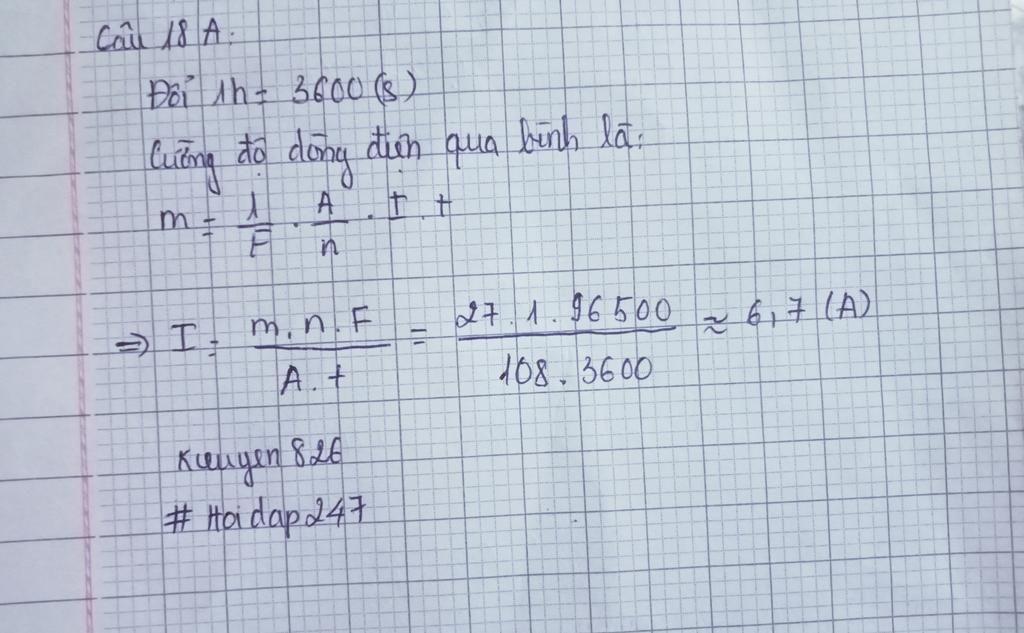 Câu 18 A.
Đổi 1h = 3600 (s)
Cường độ dòng điện qua bình là:
m = 1/F . A/n . I . t
=> I = m.n.F / A.t = 27.1.96500 / 108.3600 ≈ 6,7 (A)
826
# Hoidap247